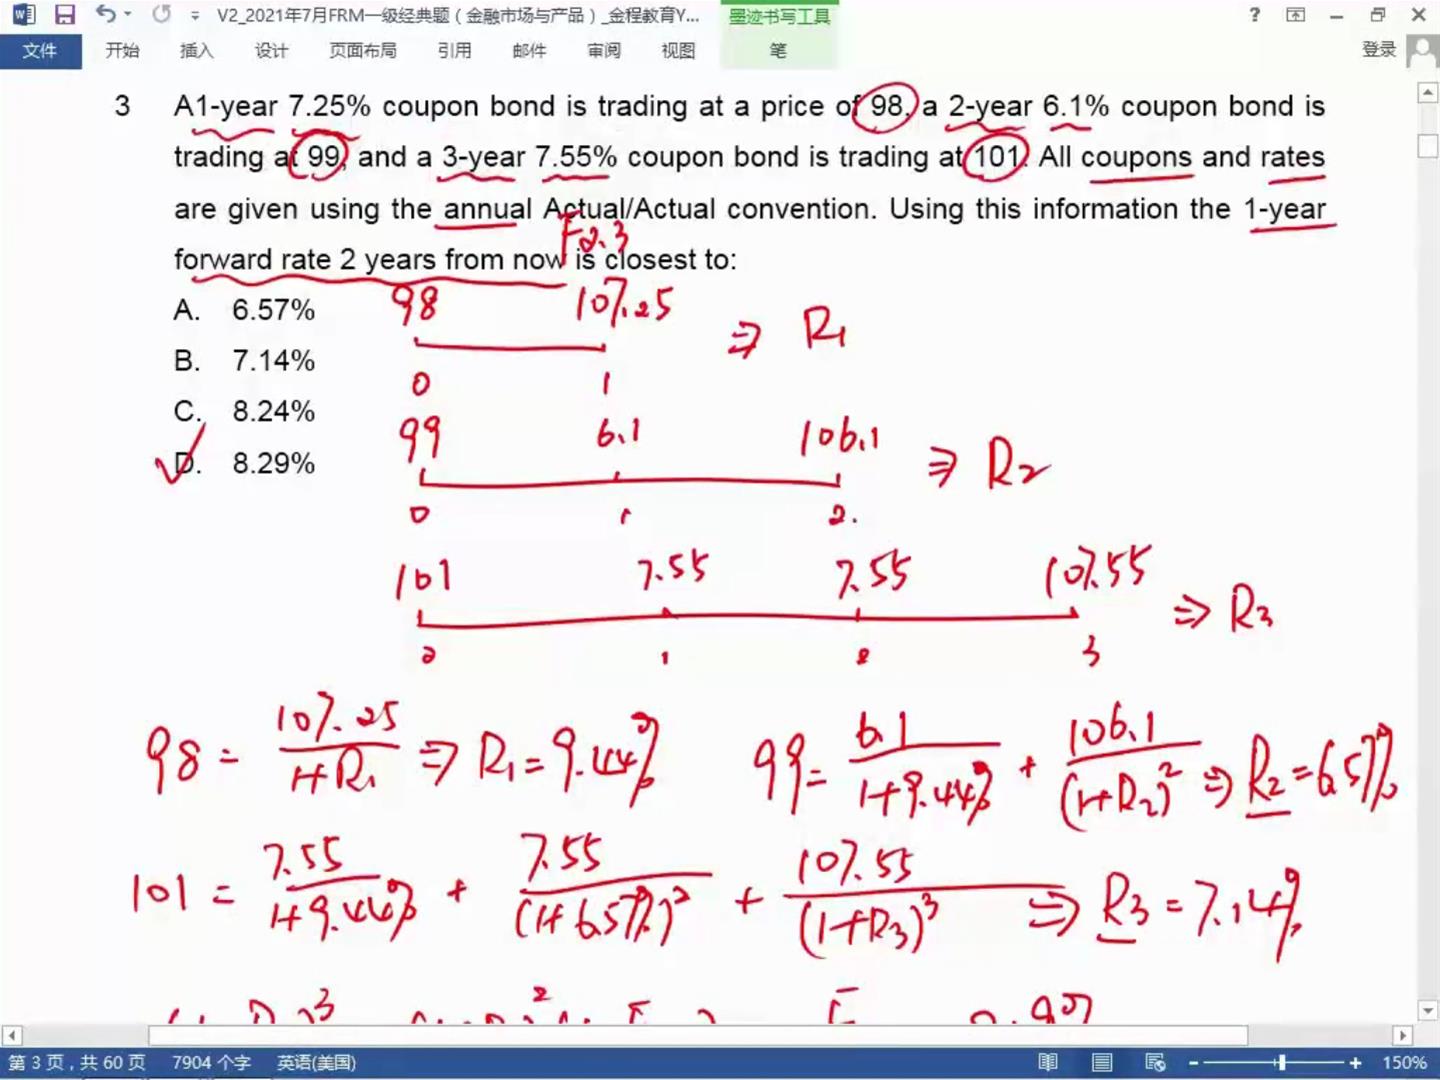 V2_2021年7月FRM一级经典题（金融市场与产品）_金程教育Y...
墨迹书写工具
文件 开始 插入 设计 页面布局 引用 邮件 审阅 视图 笔 登录
3 A1-year 7.25% coupon bond is trading at a price of 98, a 2-year 6.1% coupon bond is
trading at 99, and a 3-year 7.55% coupon bond is trading at 101. All coupons and rates
are given using the annual Actual/Actual convention. Using this information the 1-year
F2.3
forward rate 2 years from now is closest to:
A. 6.57%
98 107.25 ⇒ R1
B. 7.14%
0 1
C. 8.24%
99 6.1 106.1 ⇒ R2
D. 8.29%
0 1 2.
101 7.55 7.55 107.55 ⇒ R3
1 2 3
98 = 107.25 / 1+R1 ⇒ R1 = 9.44% 99 = 6.1 / 1+9.44% + 106.1 / (1+R2)² ⇒ R2 = 6.57%
101 = 7.55 / 1+9.44% + 7.55 / (1+6.57%)² + 107.55 / (1+R3)³ ⇒ R3 = 7.14%
第 3 页，共 60 页 7904 个字 英语(美国) 150%